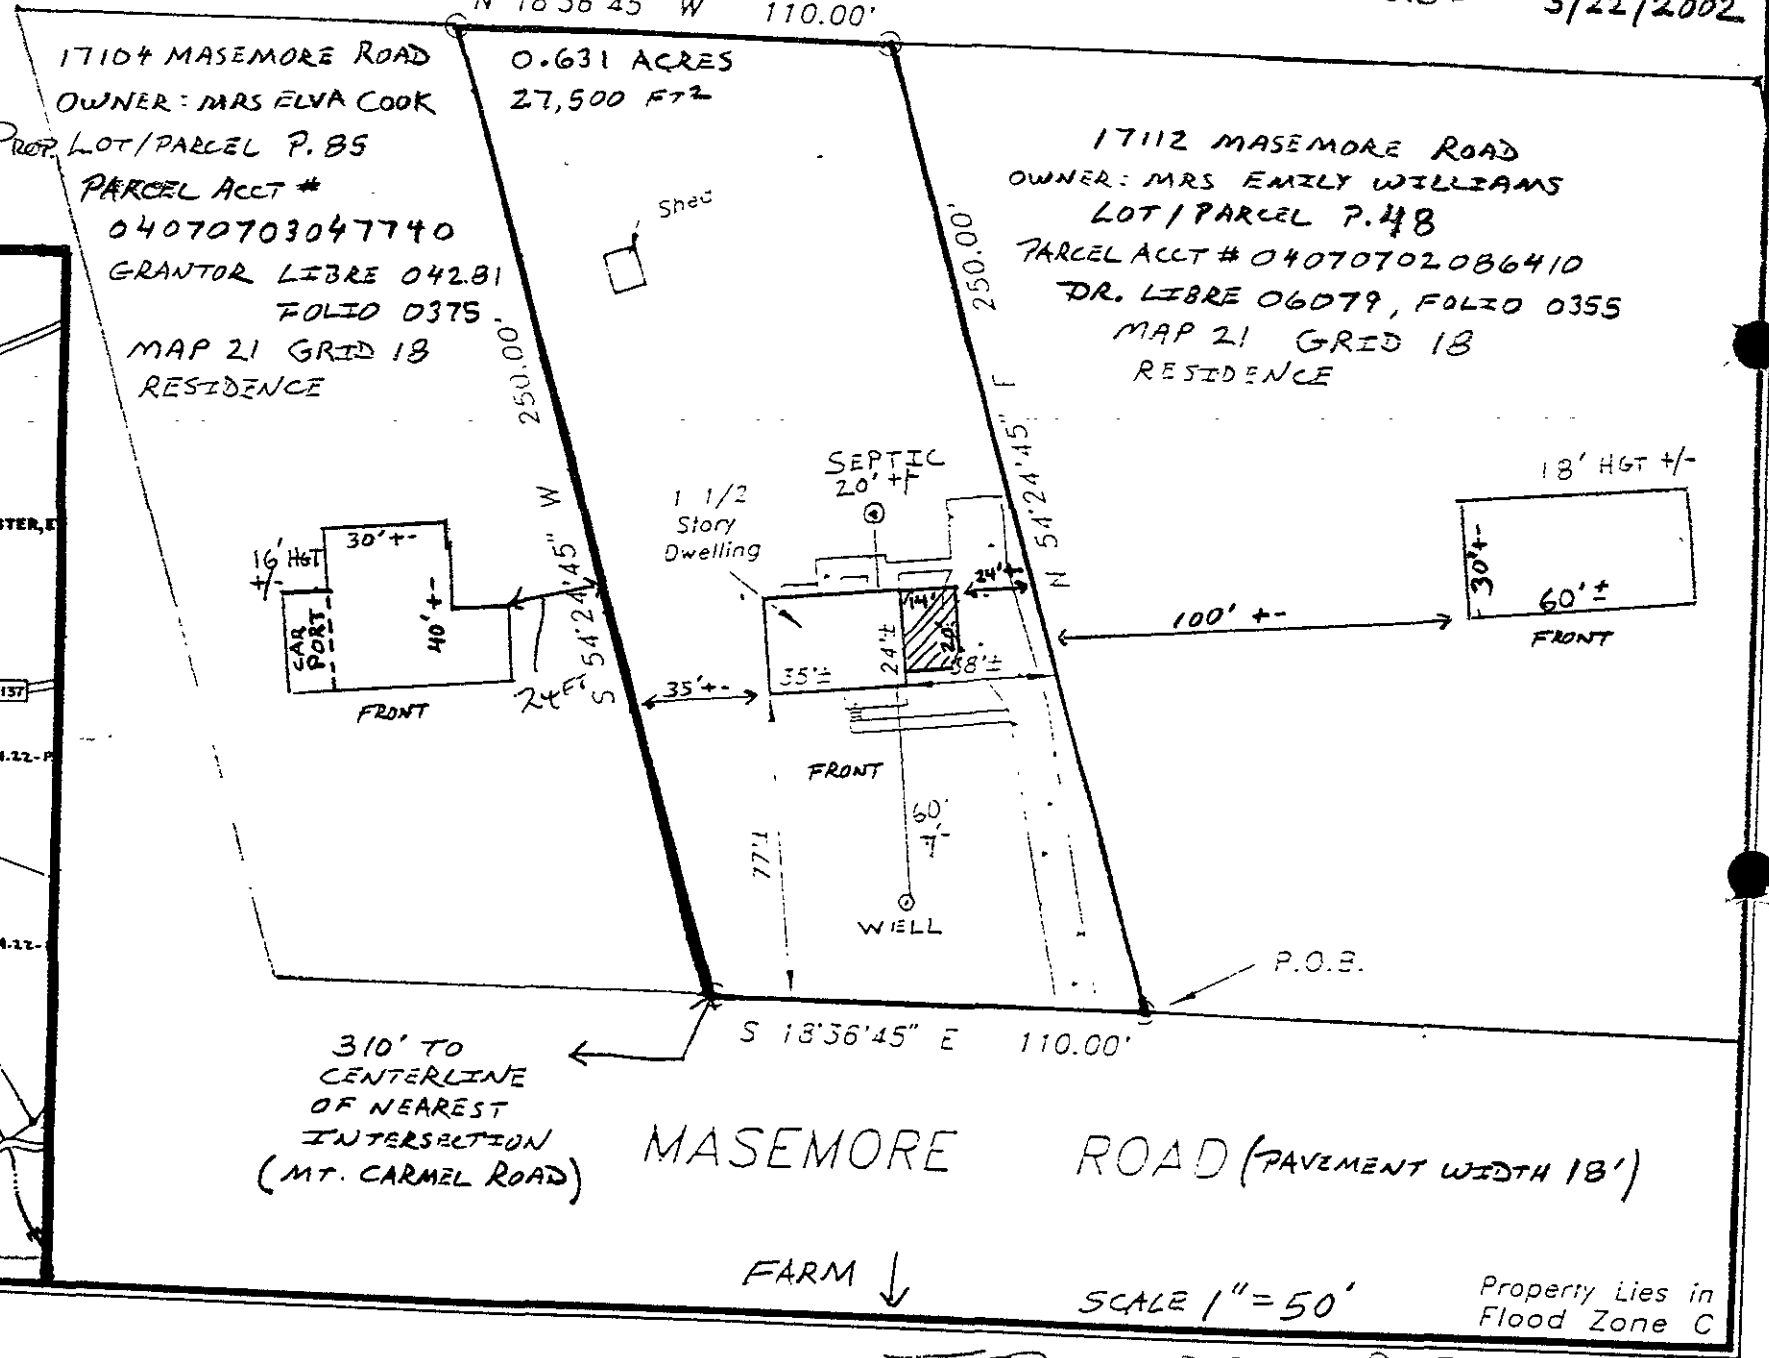 N 18°36'45" W 110.00'
5/22/2002
17104 MASEMORE ROAD
OWNER: MRS ELVA COOK
PROP. LOT/PARCEL P. 85
PARCEL ACCT #
04070703047740
GRANTOR LIBRE 04281
FOLIO 0375.
MAP 21 GRID 18
RESIDENCE
0.631 ACRES
27,500 FT2
Shed
17112 MASEMORE ROAD
OWNER: MRS EMILY WILLIAMS
LOT/PARCEL P.48
PARCEL ACCT # 04070702086410
DR. LIBRE 06079, FOLIO 0355
MAP 21 GRID 18
RESIDENCE
S 54°24'45" W 250.00
N 54°24'45" E 250.00'
SEPTIC
20' +F
1 1/2
Story
Dwelling
16' HGT
+/-
30'+-
40'+-
CAR
PORT
FRONT
24 FT
35'+-
35'±
24'±
14'
20'
24'+-
38'±
100' +-
18' HGT +/-
30'+-
60'±
FRONT
FRONT
77'±
60'
+-
WELL
P.O.B.
S 18°36'45" E 110.00'
310' TO
CENTERLINE
OF NEAREST
INTERSECTION
(MT. CARMEL ROAD)
MASEMORE ROAD (PAVEMENT WIDTH 18')
FARM
SCALE 1"=50'
Property Lies in
Flood Zone C
137